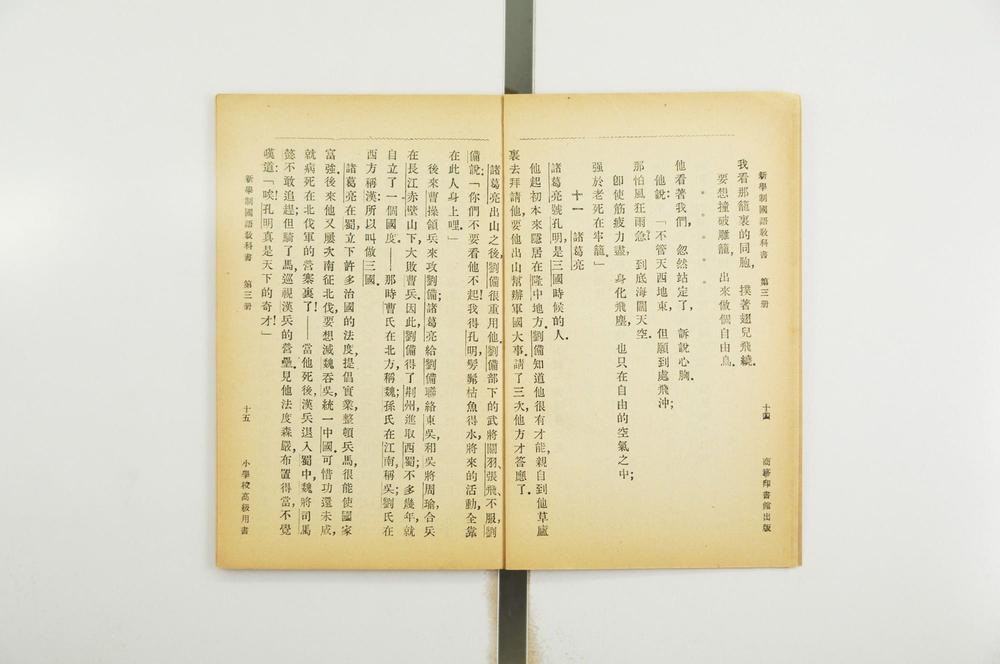 新學制國語教科書　第三册　十四　商務印書館出版
我看那籠裏的同胞，　撲著翅兒飛繞。
要想撞破雕籠，　出來做個自由鳥。
＊　＊　＊　＊
他看著我們，　忽然站定了，　訴說心胸；
他說：　「不管天西地東，　但願到處飛沖，
那怕風狂雨急，　到底海闊天空。
卽使筋疲力盡，　身化飛塵，　也只在自由的空氣之中；
強於老死在牢籠。」
十一　諸葛亮
諸葛亮號孔明，是三國時候的人。
他起初本來隱居在隆中地方，劉備知道他很有才能，親自到他草廬
裏去拜請他，要他出山幫辦軍國大事。請了三次，他方才答應了。
諸葛亮出山之後，劉備很重用他。劉備部下的武將關羽、張飛、不服，劉
備說：「你們不要看他不起！我得孔明，勞髴枯魚得水，將來的活動，全靠
在此人身上哩。」
後來曹操領兵來攻劉備；諸葛亮給劉備聯絡東吳，和吳將周瑜，合兵
在長江赤壁山下，大敗曹兵。因此劉備得了荆州，進取西蜀；不多幾年，就
自立了一個國度。——那時曹氏在北方，稱魏；孫氏在江南，稱吳；劉氏在
西方，稱漢：所以叫做三國。
諸葛亮在蜀，立下許多治國的法度，提倡實業，整頓兵馬，很能使國家
富強。後來他又屢次南征北伐，要想滅魏吞吳，統一中國。可惜功還未成，
就病死在北伐軍的營寨裏了！——當他死後，漢兵退入蜀中，魏將司馬
懿不敢追趕；但騎了馬，巡視漢兵的營壘。見他法度森嚴，布置得當，不覺
嘆道：「唉！孔明真是天下的奇才！」
新學制國語教科書　第三册　十五　小學校高級用書